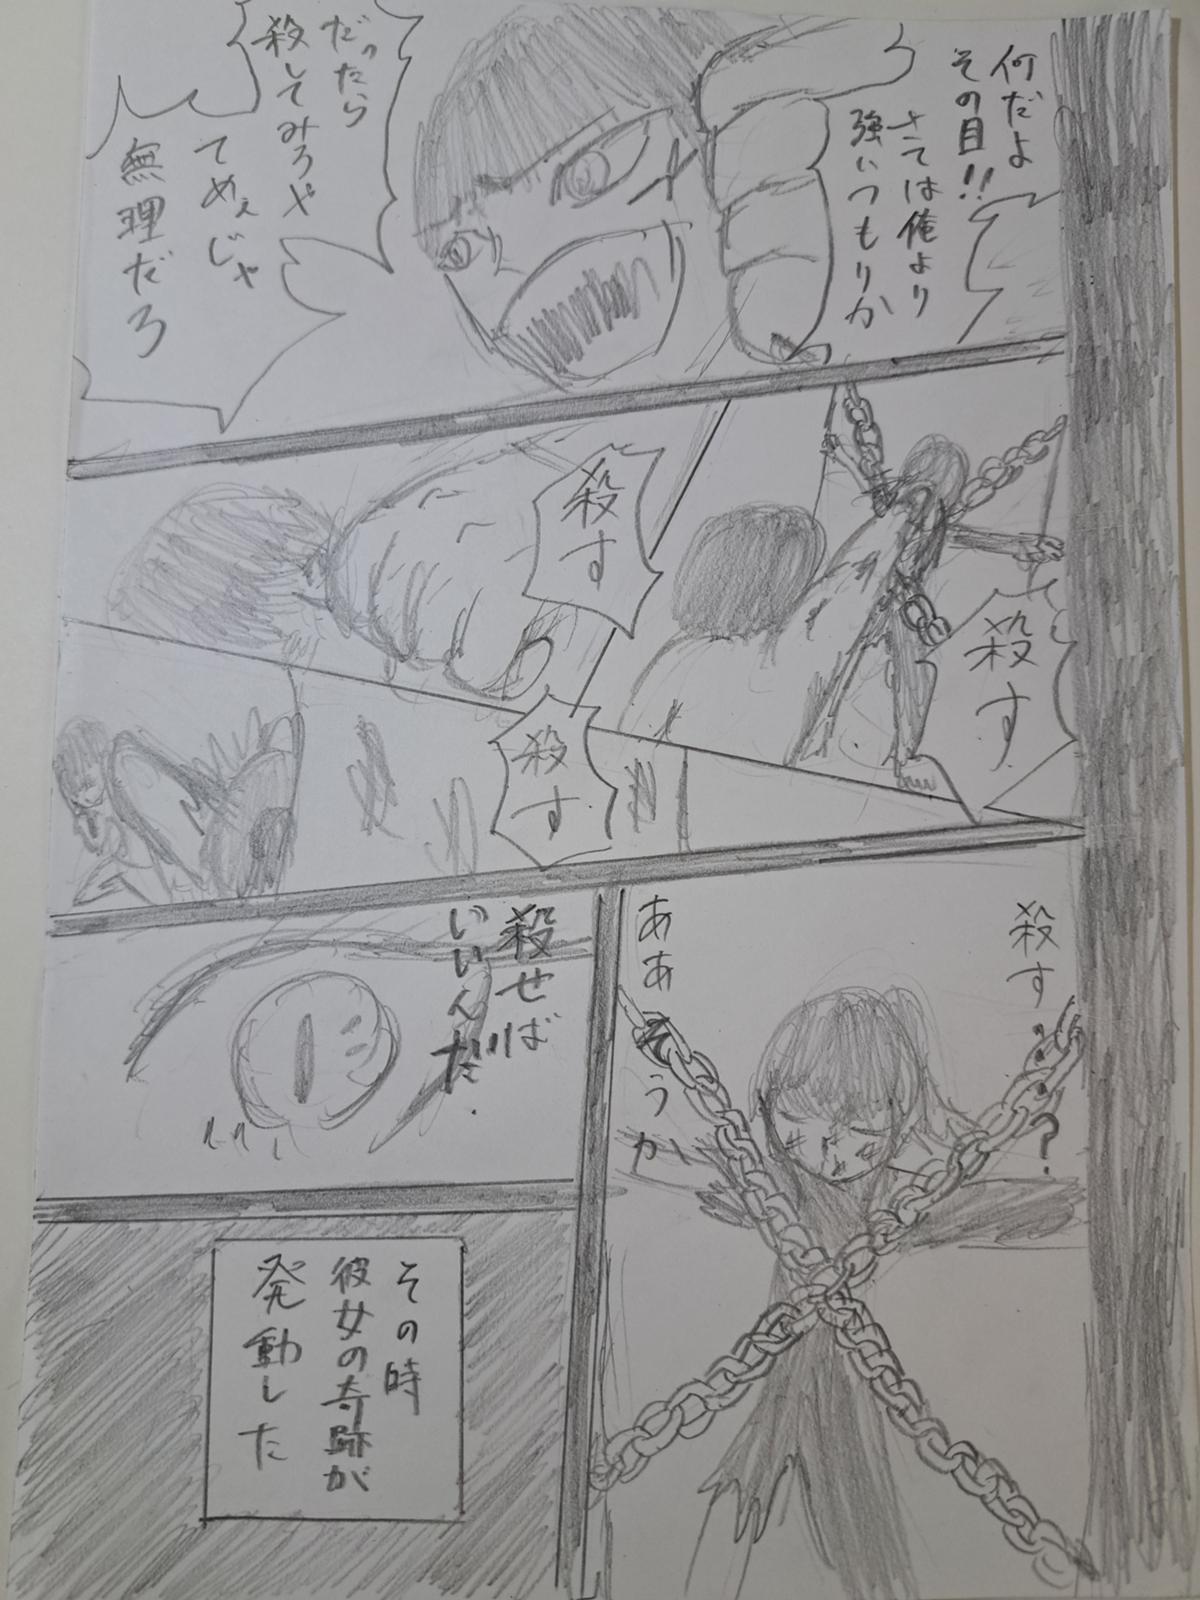 何だよ
その目!!
さては俺より
強いつもりか
だったら
殺してみろや
てめぇじゃ
無理だろ
殺す
殺す
殺す
殺す・・・?
ああそうか
殺せば
いいんだ.
その時
彼女の奇跡が
発動した